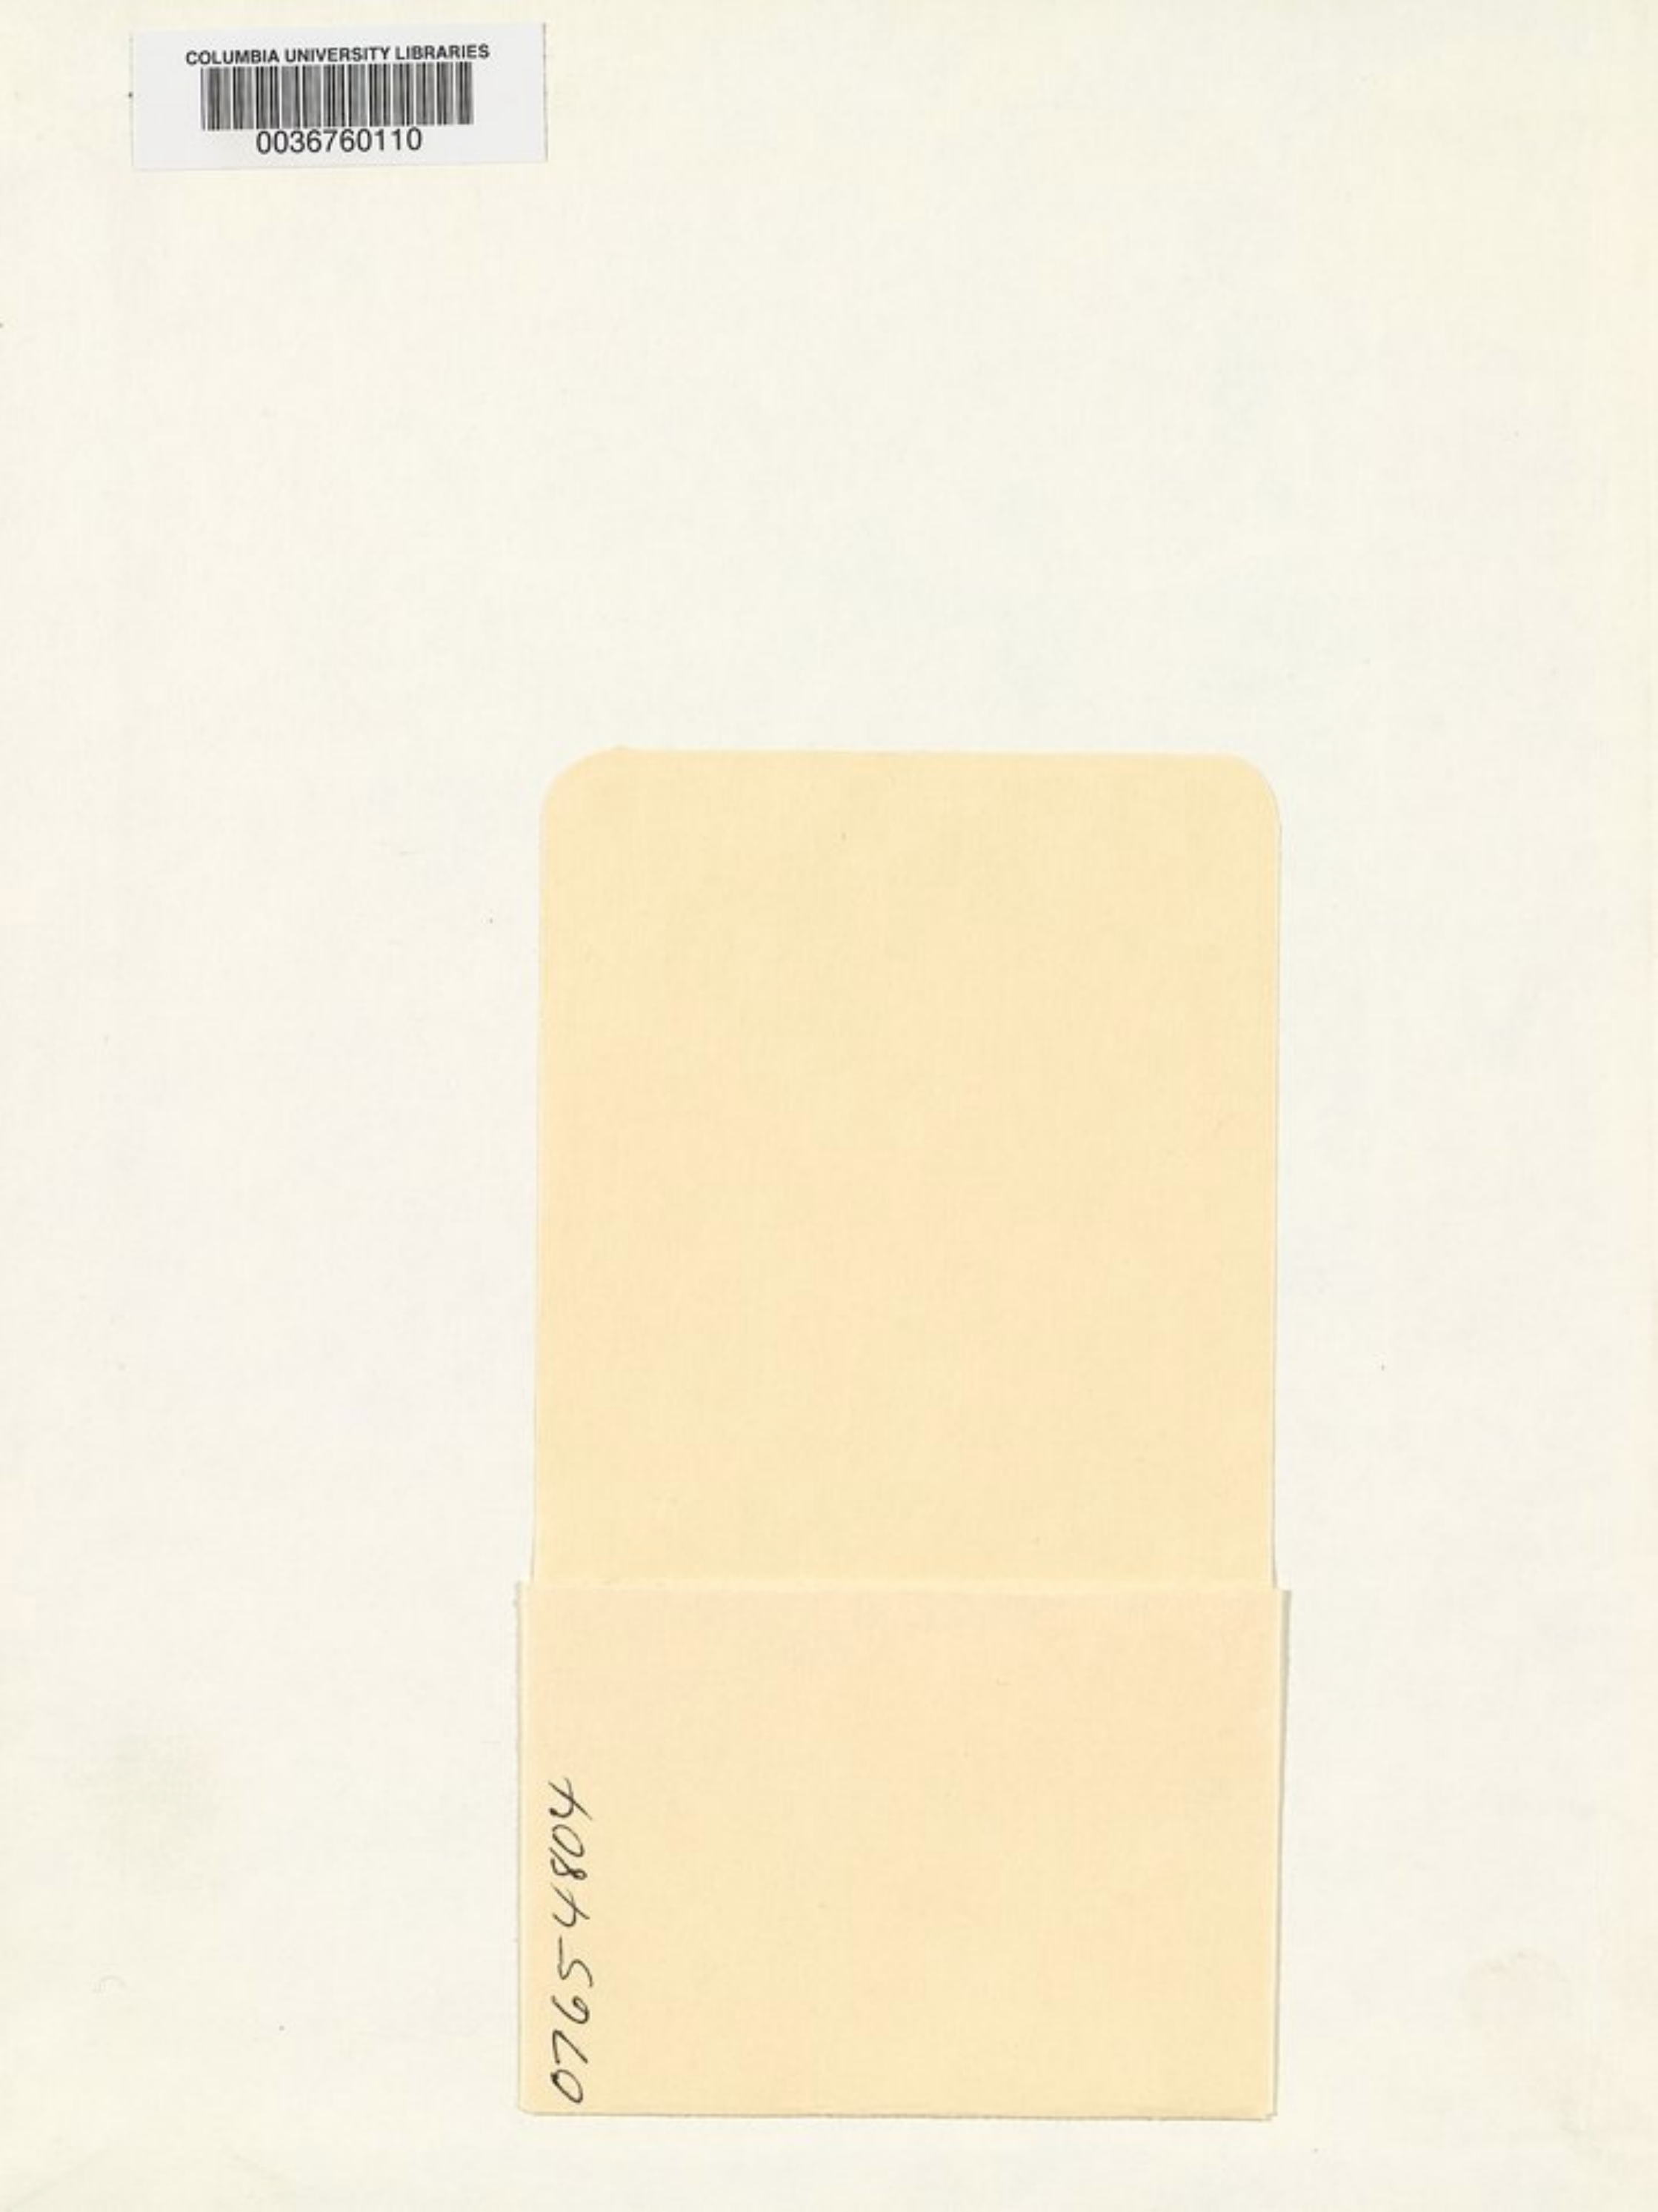 COLUMBIA UNIVERSITY LIBRARIES
0036760110
0765-4804